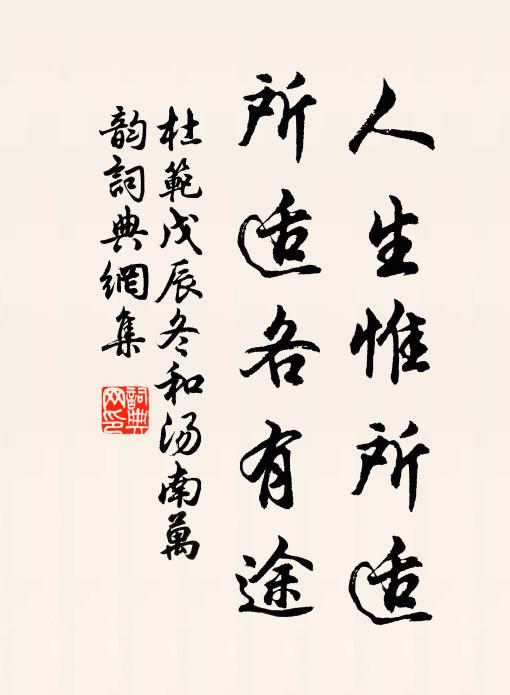 人生惟所适
所适各有途
杜範戊辰冬和汤南萬
韵詞典網集
詞典网印